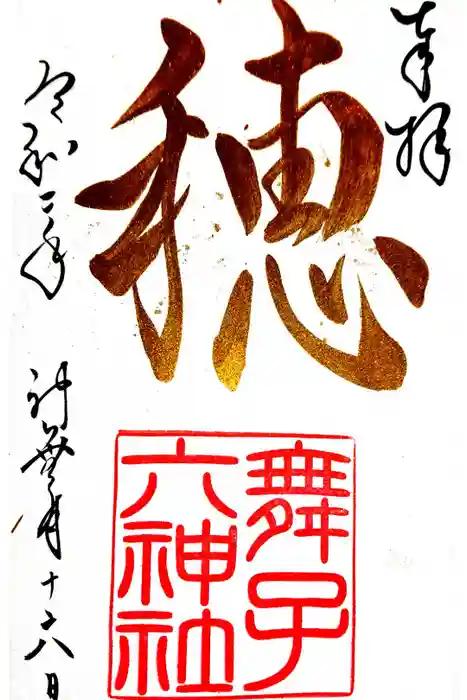 奉拝
穂
舞子
六神社
令和二年 神無月十六日